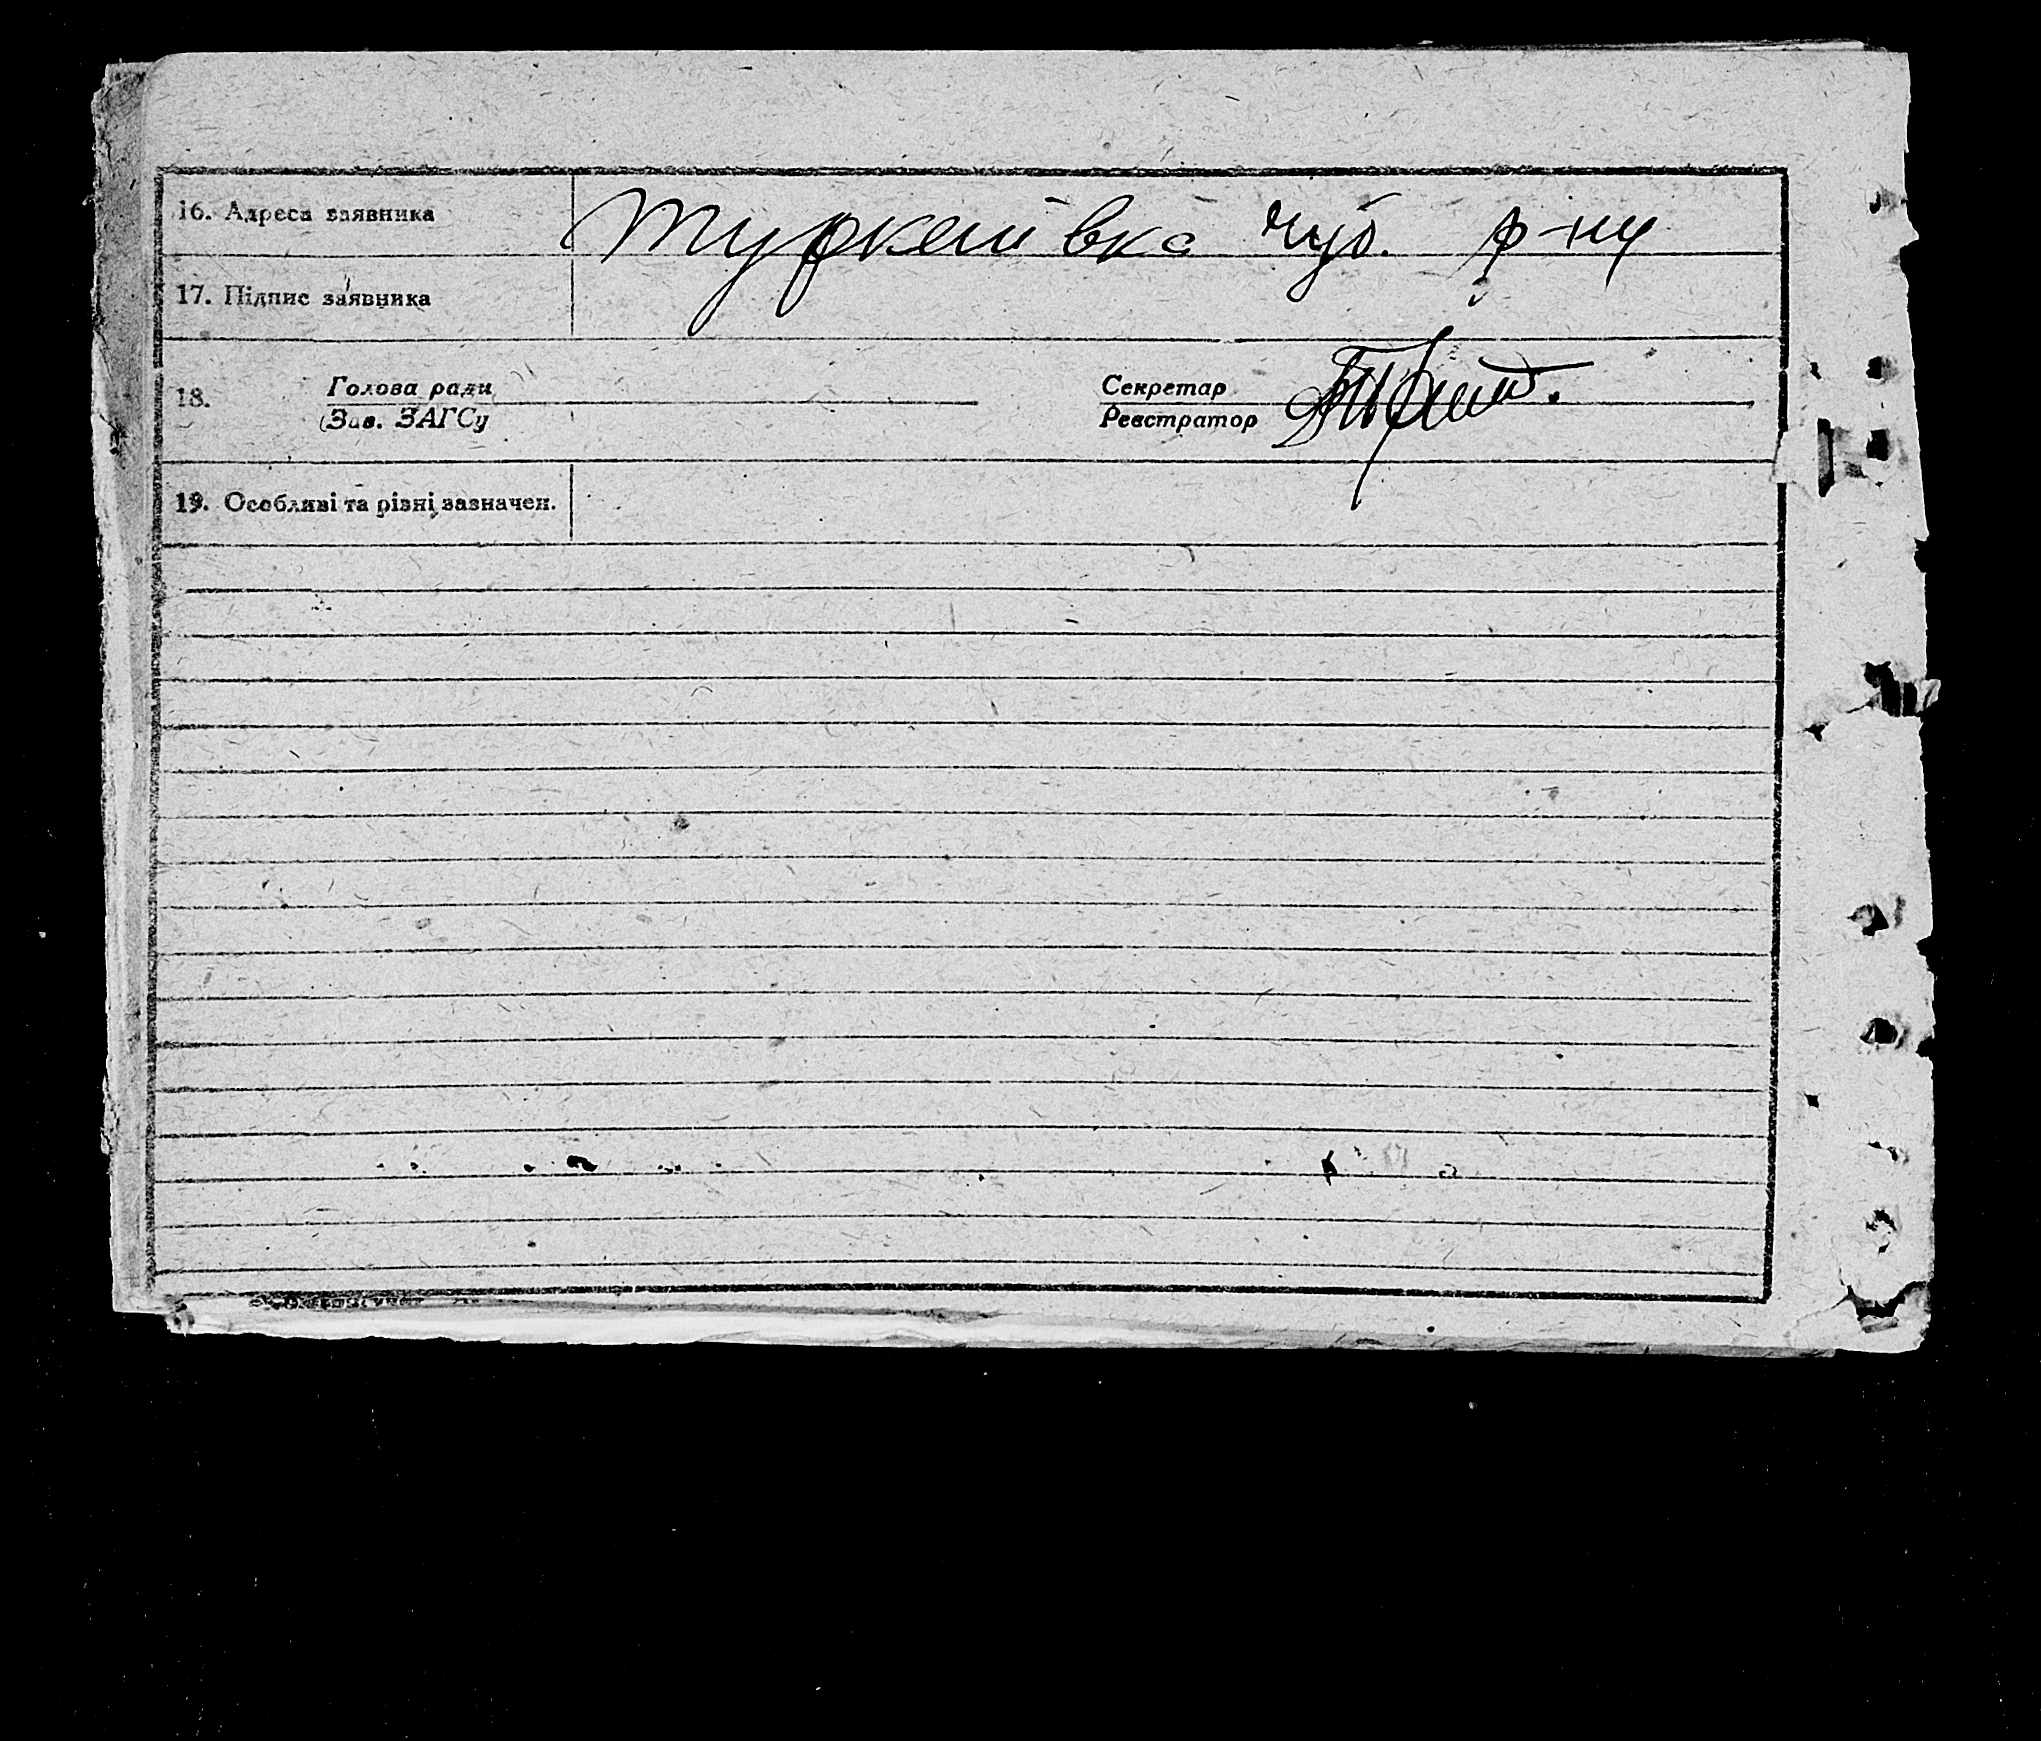 16. Адреса заявника Туркенівка чуб. р-ну
17. Підпис заявника
18. Голова ради Секретар
Зав. ЗАГСу Реєстратор
19. Особливі та різні зазначен.